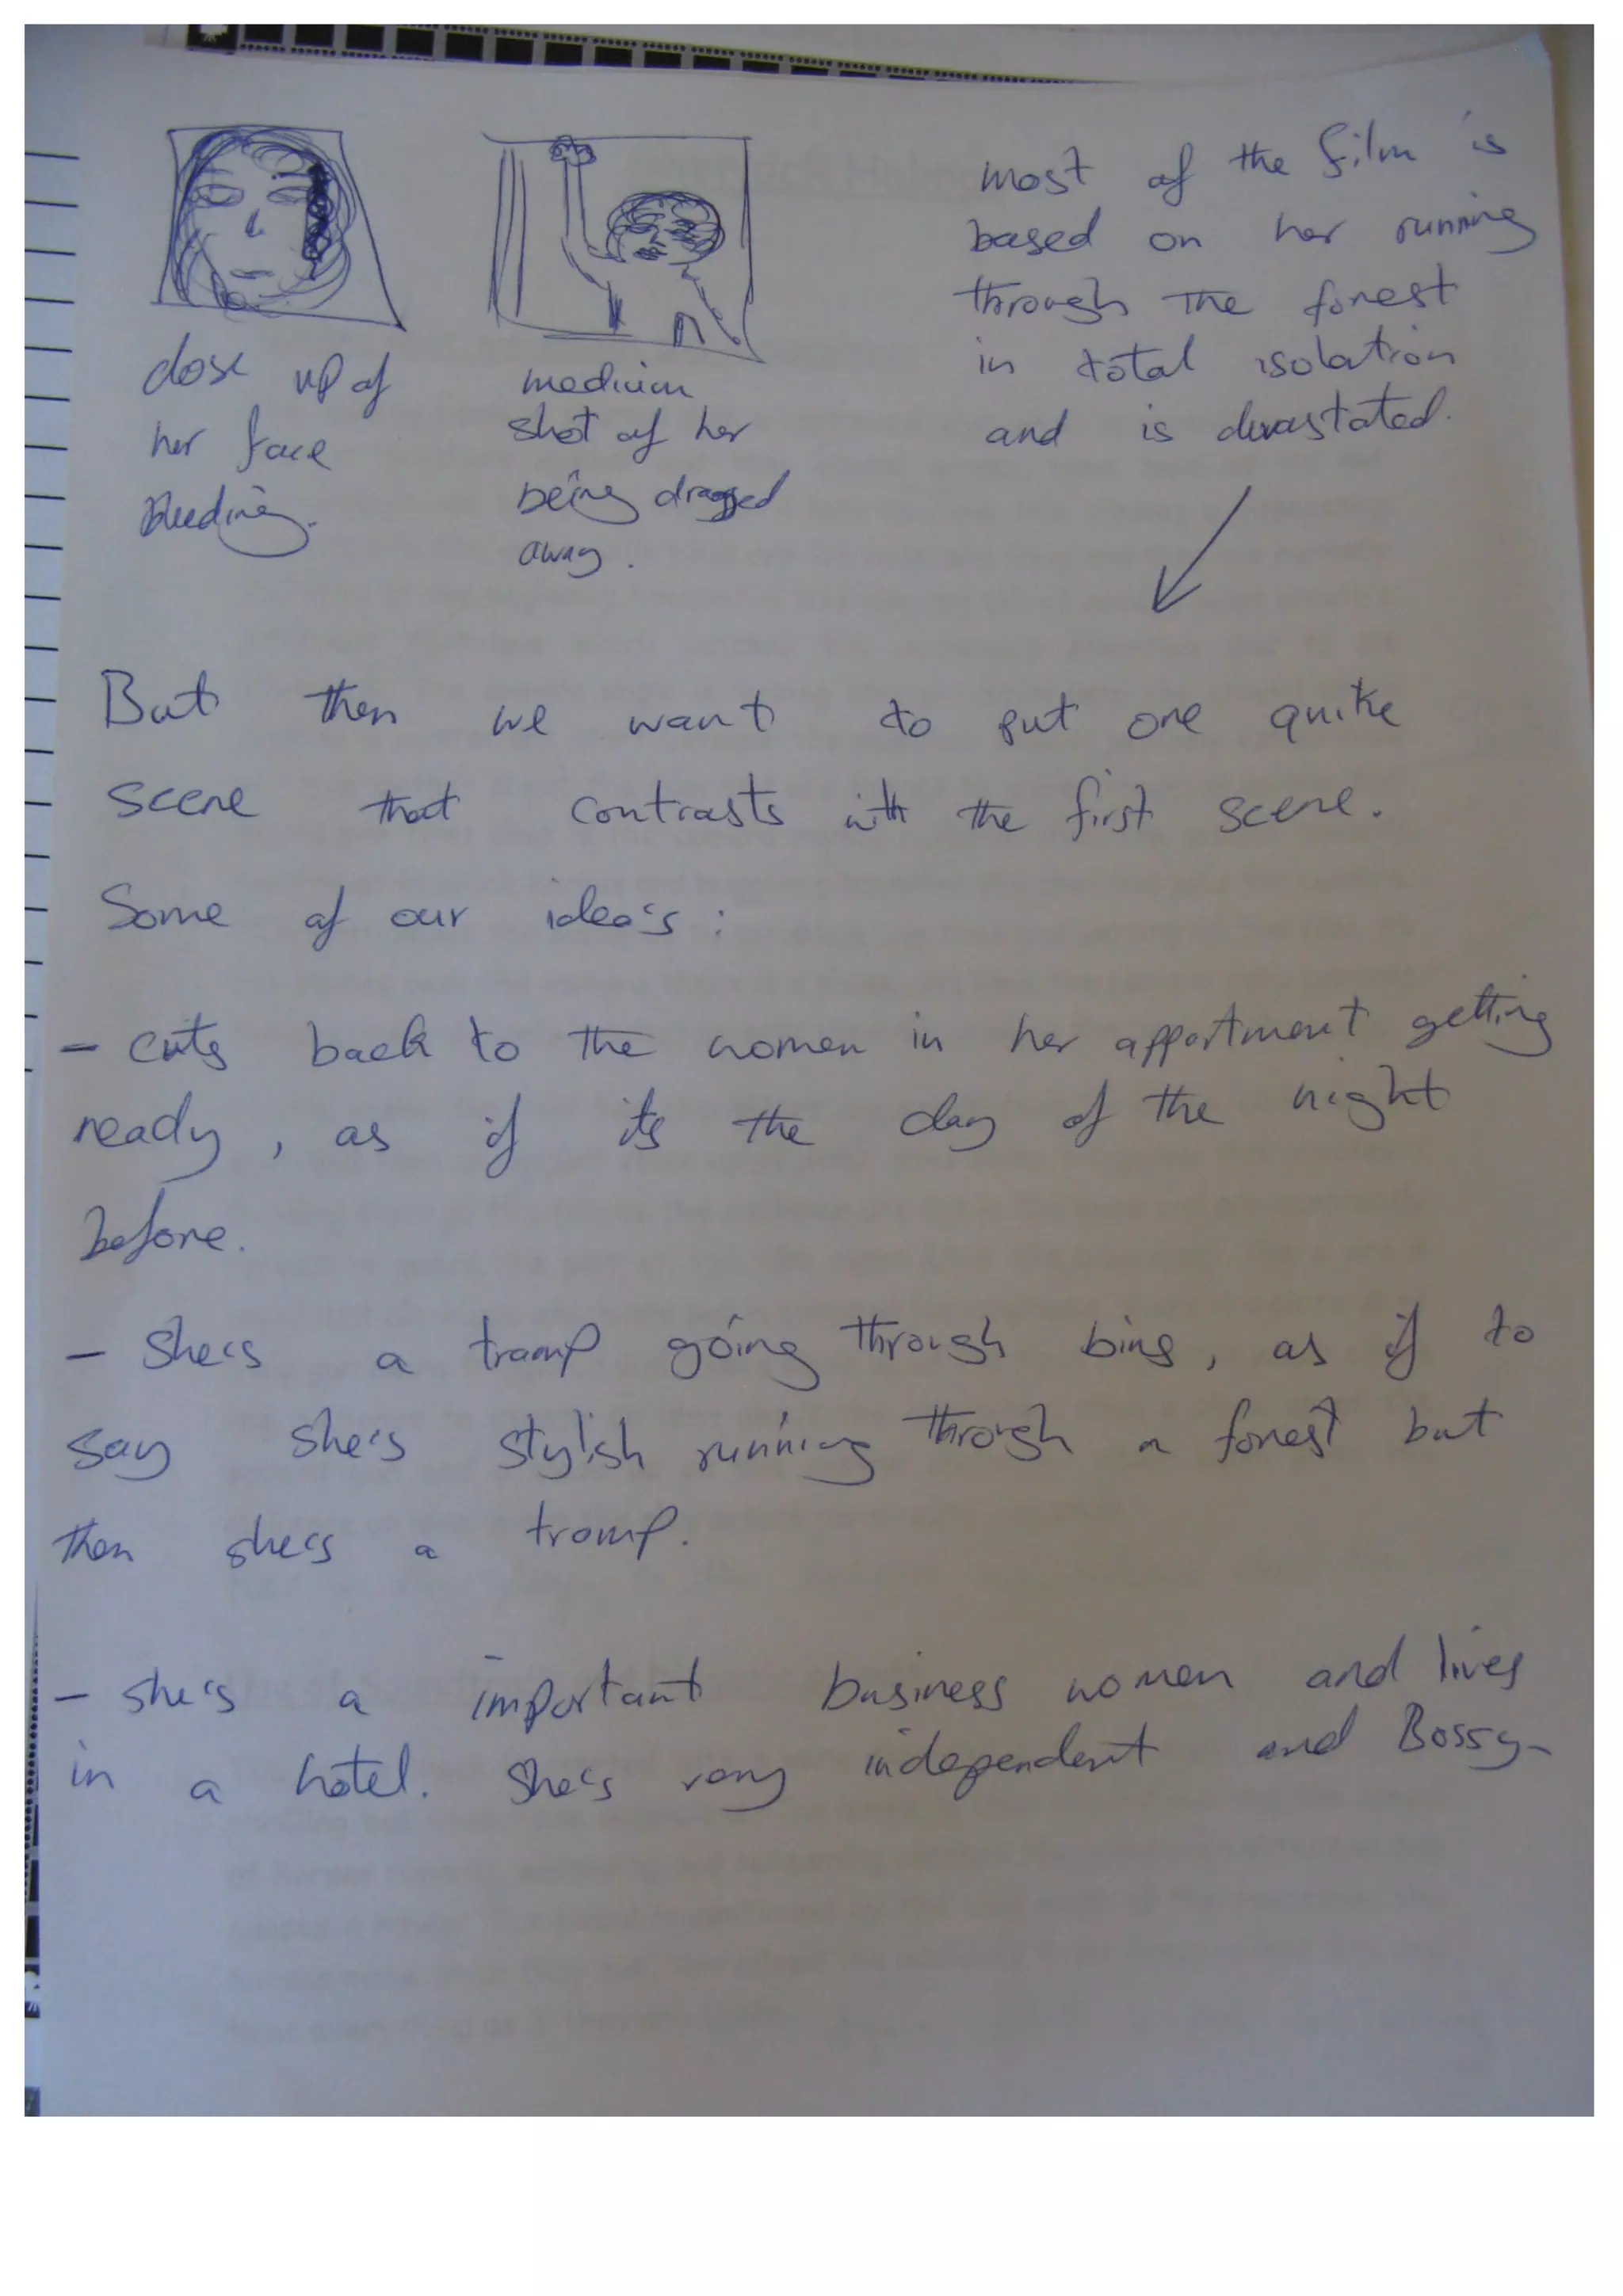 close up of
her face
bleeding.
medium
shot of her
being dragged
away.
most of the film is
based on her running
through the forest
in total isolation
and is devastated.
But then we want to put one quike
scene that contrasts with the first scene.
Some of our idea's:
- cuts back to the women in her appartment getting
ready, as if its the day of the night
before.
- She's a tramp going through bins, as if to
say she's stylish running through a forest but
then she's a tramp.
- she's a important business women and lives
in a hotel. She's very independent and Bossy-